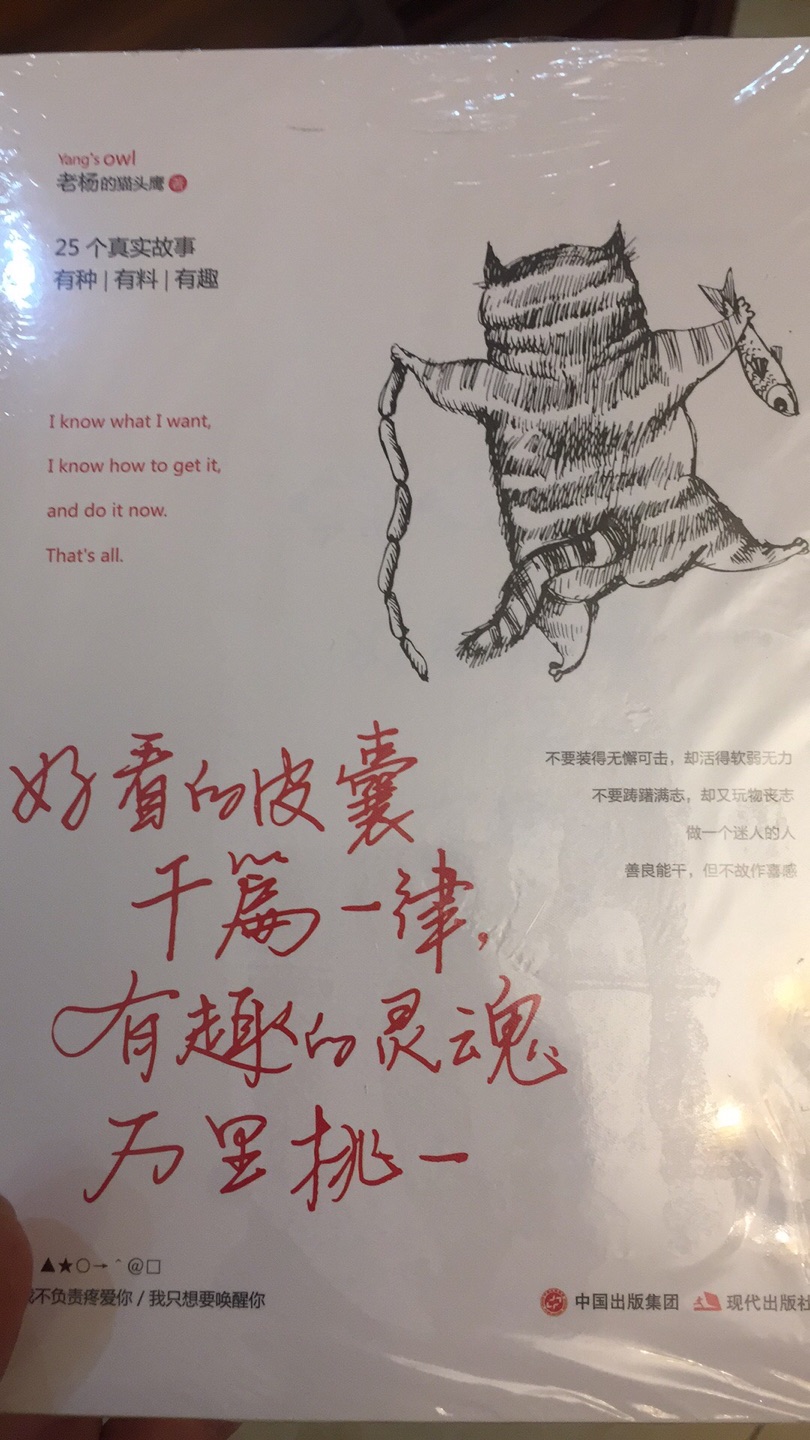 Yang's owl
老杨的猫头鹰 著
25个真实故事
有种 | 有料 | 有趣
I know what I want,
I know how to get it,
and do it now.
That's all.
不要装得无懈可击，却活得软弱无力
不要踌躇满志，却又玩物丧志
做一个迷人的人
善良能干，但不故作喜感
好看的皮囊
千篇一律，
有趣的灵魂
万里挑一
▲★○→＾@□
不负责疼爱你 / 我只想要唤醒你
中国出版集团 现代出版社